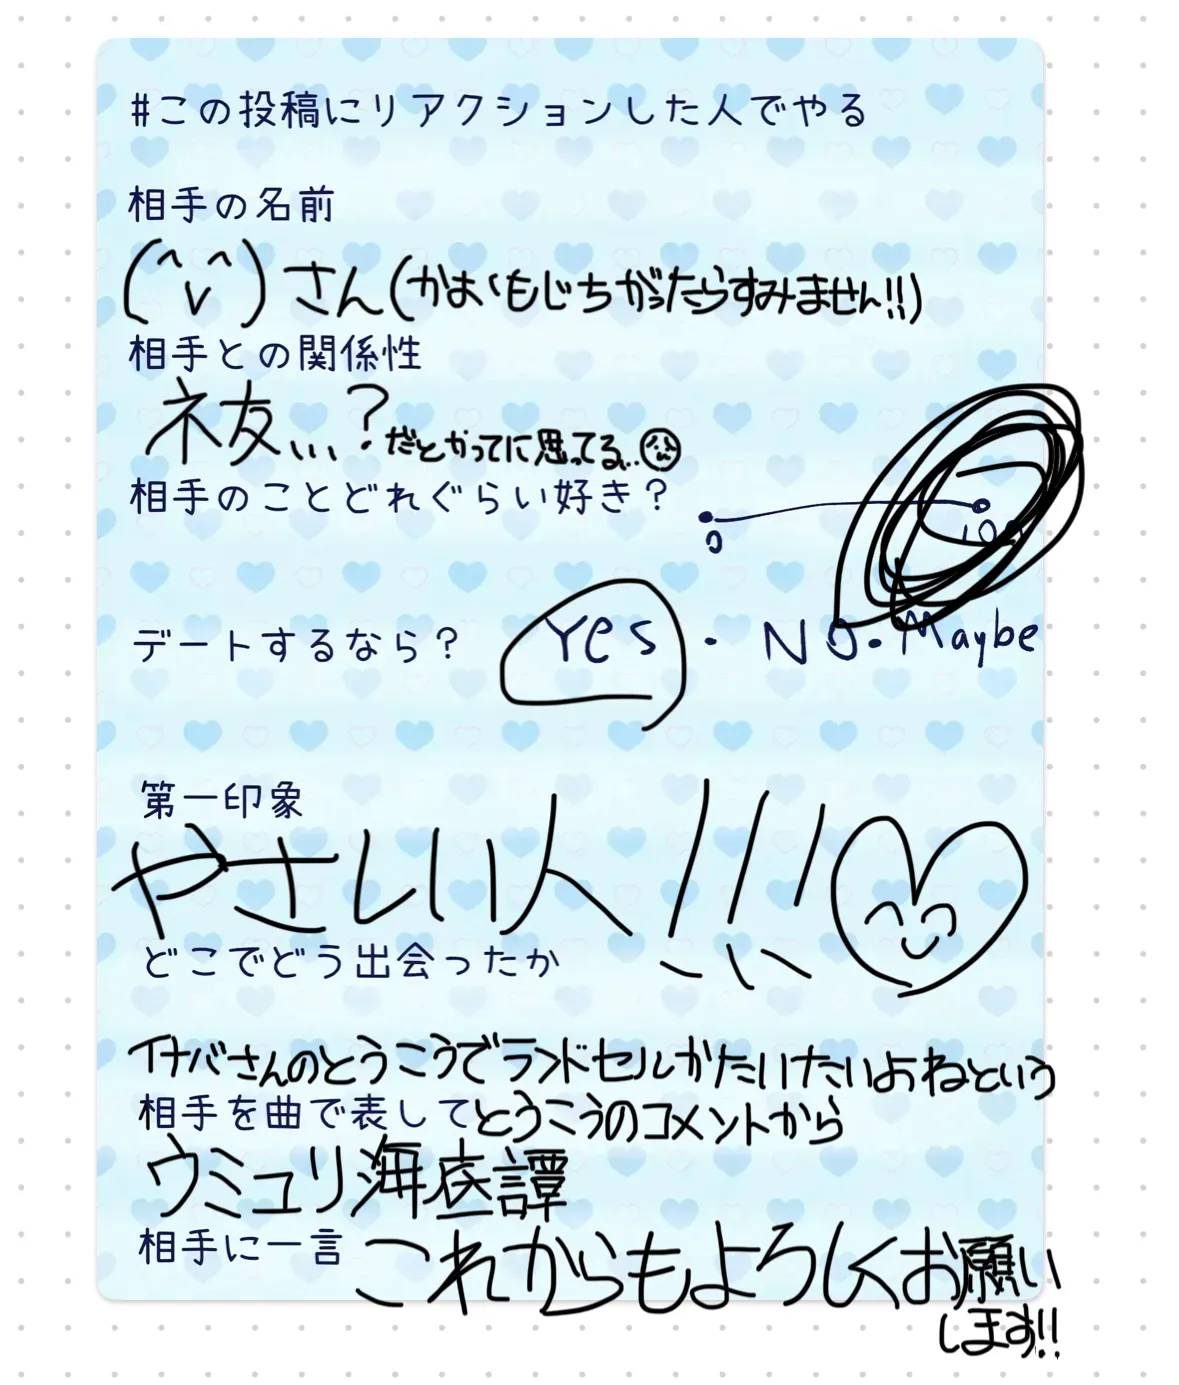 #この投稿にリアクションした人でやる
相手の名前
(^v^)さん(かおもじちがったらすみません!!)
相手との関係性
ネ友、、、?だとかってに思ってる...
相手のことどれぐらい好き?
0 100
デートするなら? Yes・NO・Maybe
第一印象
やさしい人!!!
どこでどう出会ったか
イナバさんのとうこうでランドセルかたいたいよねという
とうこうのコメントから
相手を曲で表して
ウミユリ海底譚
相手に一言
これからもよろしくお願い
します!!